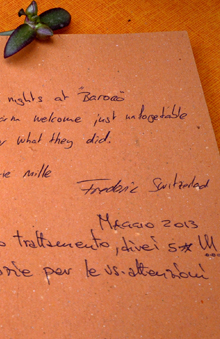 nights at "Barocco"
welcome just unforgetable
what they did.
mille
Frederic Switzerland
Maggio 2013
trattamento, direi 5* !!!
per le vs. attenzioni